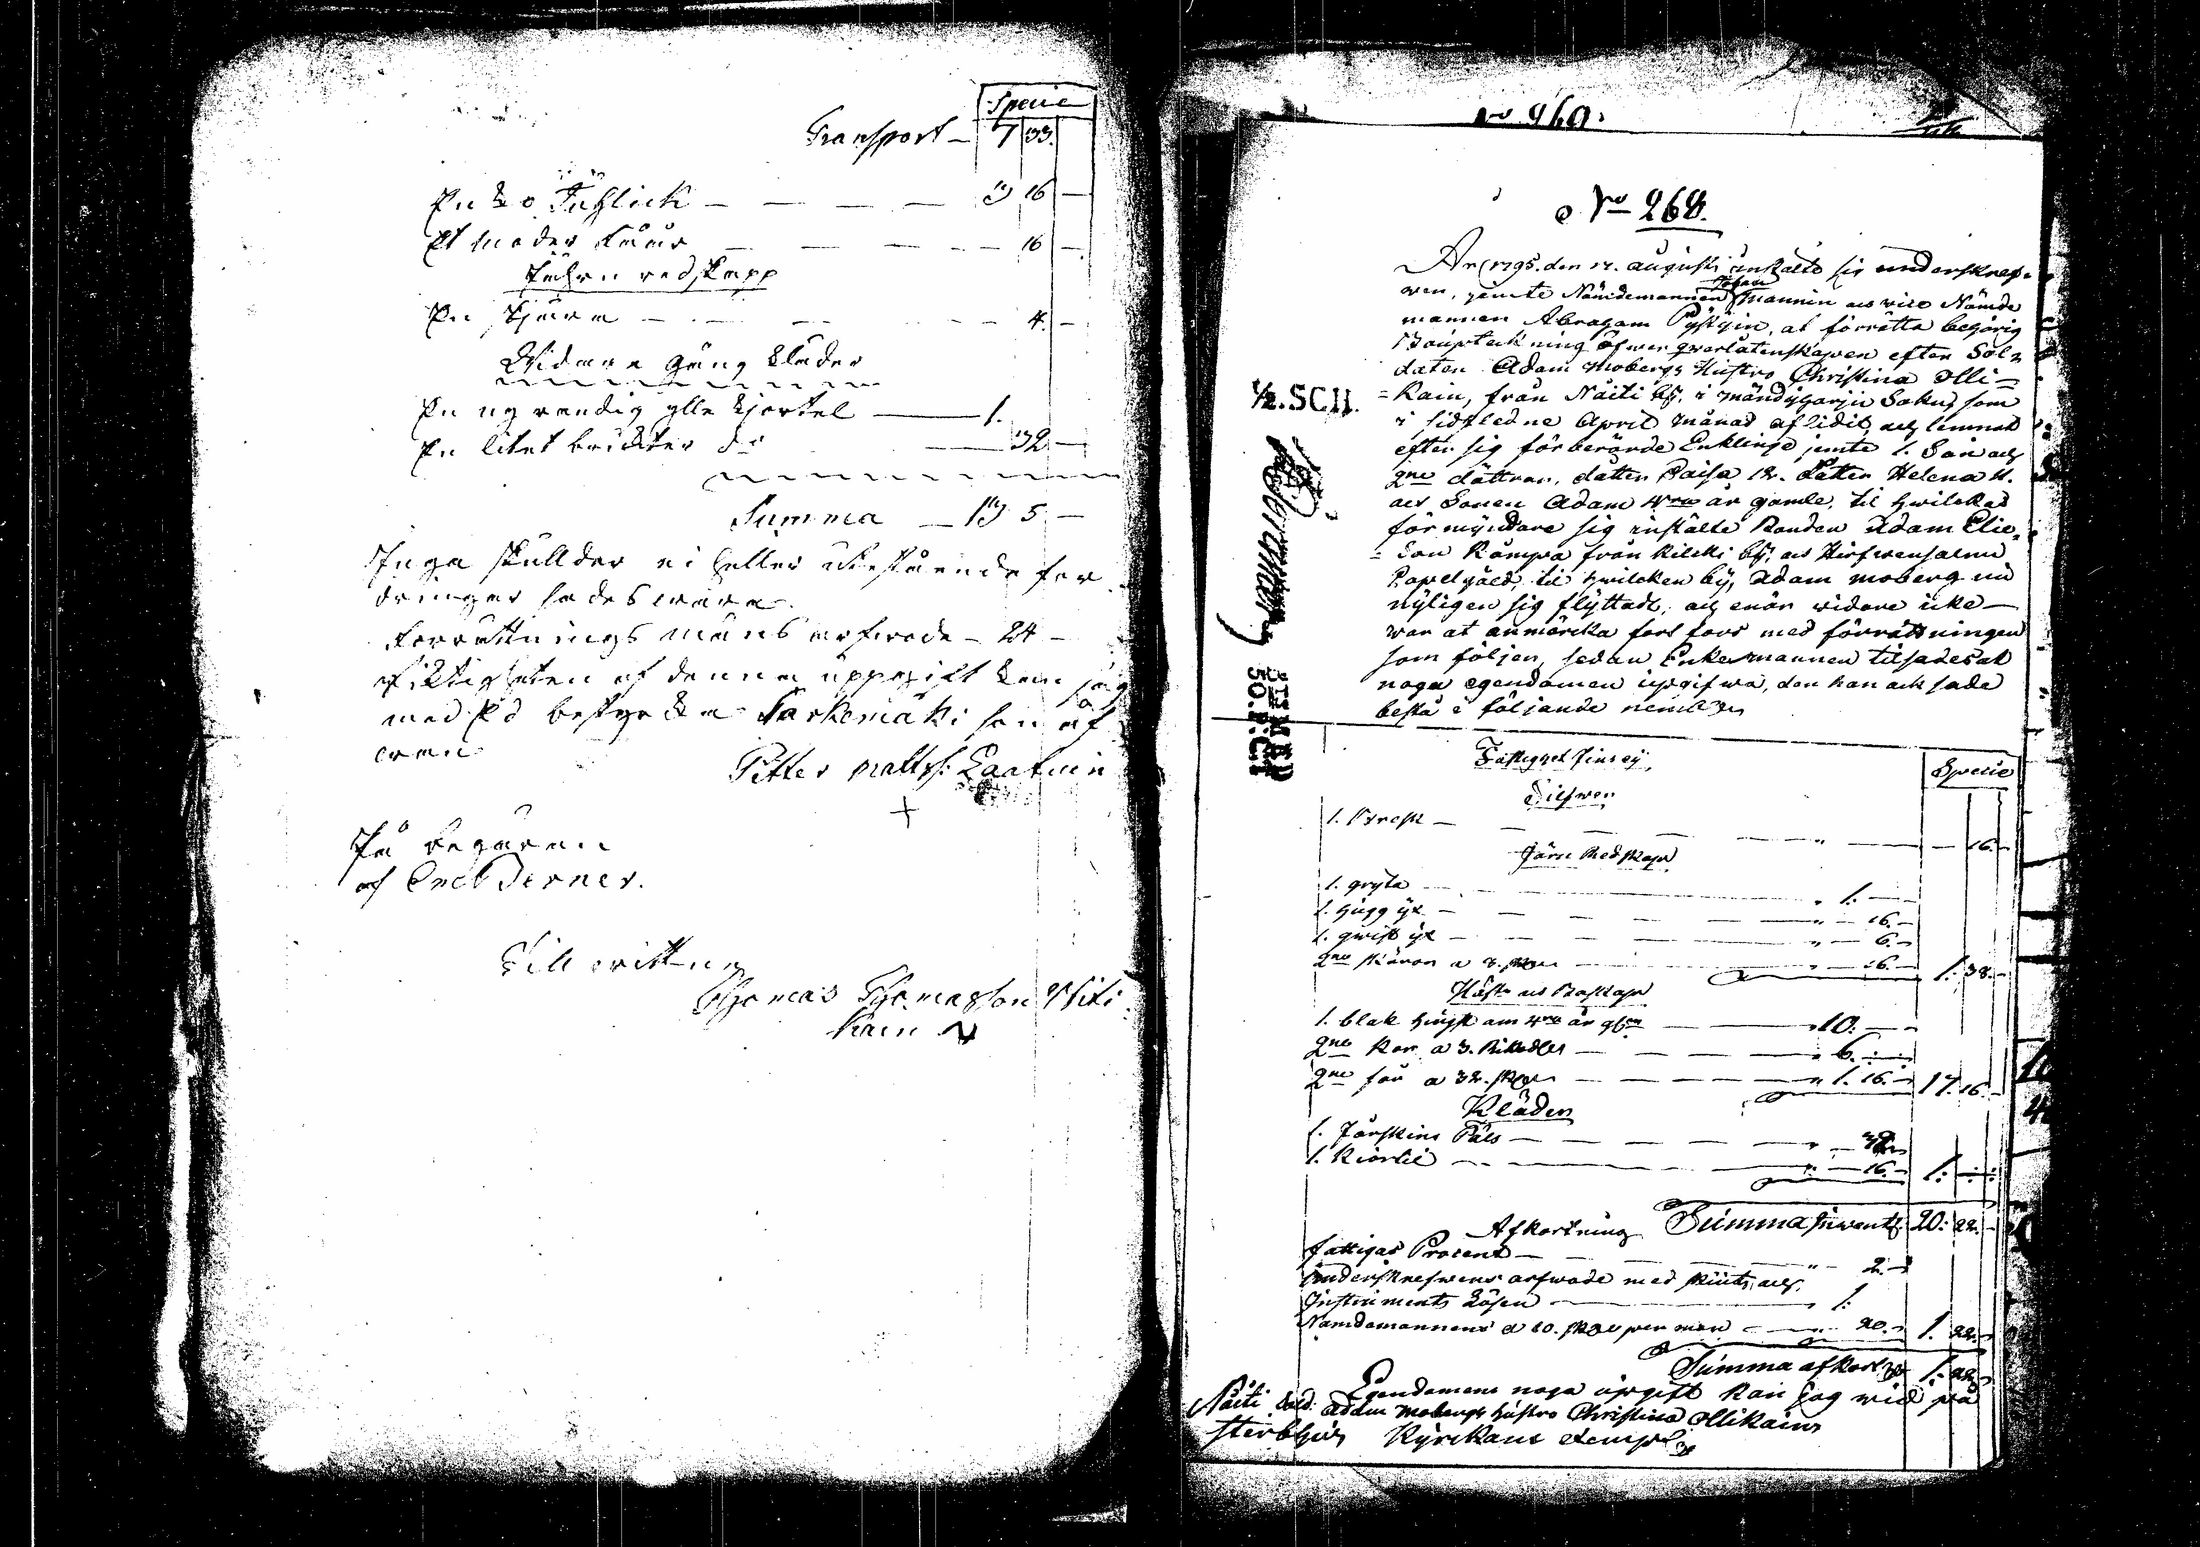 Specie
Transport — 7 33.
En ko — — — — 3 16 —
Et moder fåår — — — — 16 —
Jehrn redskapp
En skjära — — — — 4. —
Widare gång kläder
En ny randig ylle kjortel — 1.
En litet brukter do — 32 —
Summa — 13 5 —
Inga skullder ei heller utestående for
dringar sades wara.
Forrättnings mans arfwode — 24 —
Riktigheten af denna uppgift kan jag
med Ed bestyrcka Tarkemäki som of
wan
Petter Matts: Laatuin
+
På begäran
af Eric Perner.
Till witt
Thomas Thomasson
kain
No 960.
No 268.
Anno 1795. den 17. augusti instälte sig underskref=
wen, jemte Nämdemannen Johan Manninen och vice Nämde
mannen Abraham, at förrätta behörig
Bouptekning öfwer qwarlåtenskapen efter Sol=
daten Adam Mobergs Hustro Christina Olli=
=kain, från Näiti by, i Mändyharju Sokn, som
i sidstledne April Månad aflidit, och lemnat
efter sig förberörde Enkling jemte 1. Son och
2ne döttrar, dotter Caisa 12. Dotter Helena 11.
och Sonen Adam 4ra år gamle, til hwilckas
förmyndare sig instälte Bonden Adam Elie=
=son Kämpä från Kilcki by, och Hirfwensalmi
Capelgäld, til hwilcken by, Adam Moberg nu
nyligen sig flyttadt, och enär widare icke
war at anmärcka fort fors med förrättningen
som följer, sedan Enkemannen tilsades at
noga egendomen upgifwa, den han ock sade
bestå i följande
1/2. SCH.
50. P.Ct
Fastighet fins ej, Specie
Silfwer
1. Bresk — — — 16. —
Järn Redskap
1. gryta — — 1. —
1. hugg yx — — 16. —
1. qwist yx — — 6. —
2ne skäror a 8. sk — — 16. — 1. 38. —
Häst och Boskap
1. blak hingst om 4ra år — — 10. —
2ne Kor a 3. Riksdlr — — 6. —
2ne får a 32. sk — — 1. 16. — 17. 16. —
Kläder
1. Fårskins Päls — — 32
1. Kiortel — — 16. — 1. —
Summa Inwent 20. 22. —
Afkortning
fattigas Procent — — 2. —
Underskrefwens arfwode med skiuts, och
Instruments Lösen — 1.
Nämdemannens a 10. sk per man — 20. — 1. 22. —
Summa afkort 1. 22. —
Egendomens noga upgift kan jag wid på
Näiti Sold: Adam Mobergs hustro Christina Ollikains
sterbhus Kyrckans